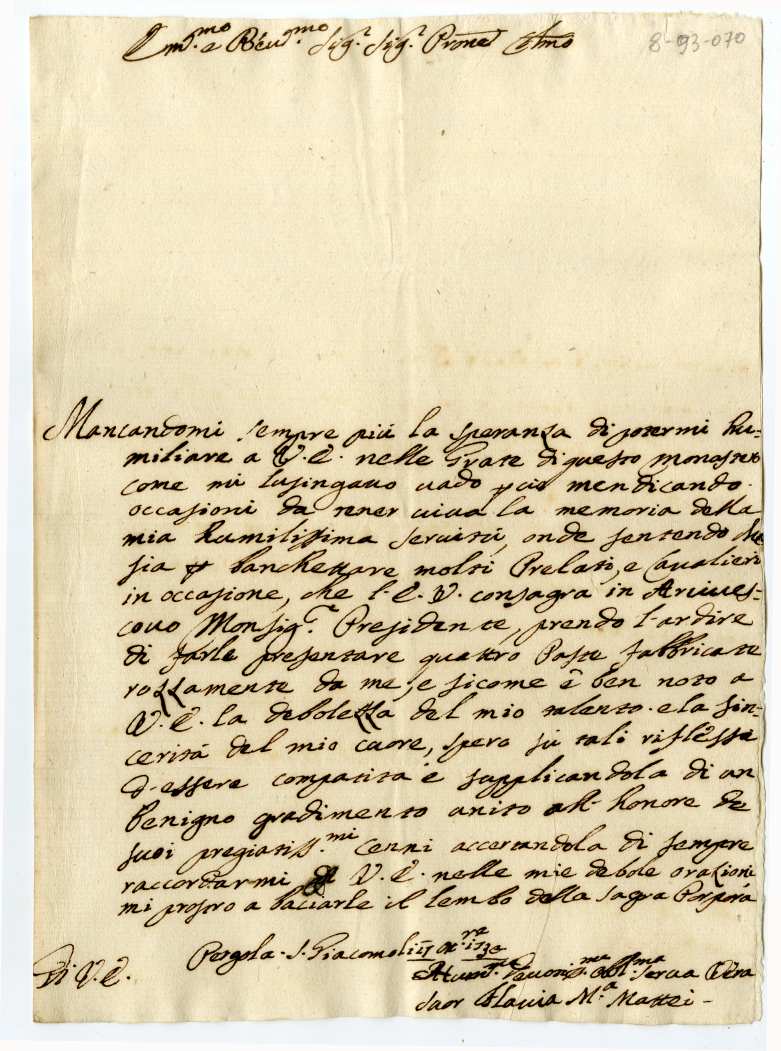 Em.mo e Rev.mo Sig.r Sig.r Prone Colmo
8-93-070
Mancandomi sempre più la speranza di potermi hu=
miliare a V. E. nelle Grate di questo monastero
come mi lusingavo vado p ciò mendicando
occasioni da tener viva la memoria della
mia humilissima servitù, onde sentendo che
sia p banchettare molti Prelati, e Cavalieri
in occasione, che l'E. V. consagra in Arcives=
covo Monsig.re Presidente, prendo l'ardire
di farle presentare quattro Paste fabbricate
rozzamente da me, e sicome è ben noto a
V. E. la debolezza del mio talento e la sin=
cerità del mio cuore, spero sù tali riflessi
d'essere compatita e supplicandola di un
benigno gradimento unito all'honore de
suoi pregiatiss.mi cenni accertandola di sempre
raccordarmi di V. E. nelle mie debole orazioni
mi prostro a baciarle il lembo della Sagra Porpora
Di V. E.
Pergola S. Giacomo li
Devotis.ma Obl.ma Serva Vera
Suor Flavia M.a Mattei